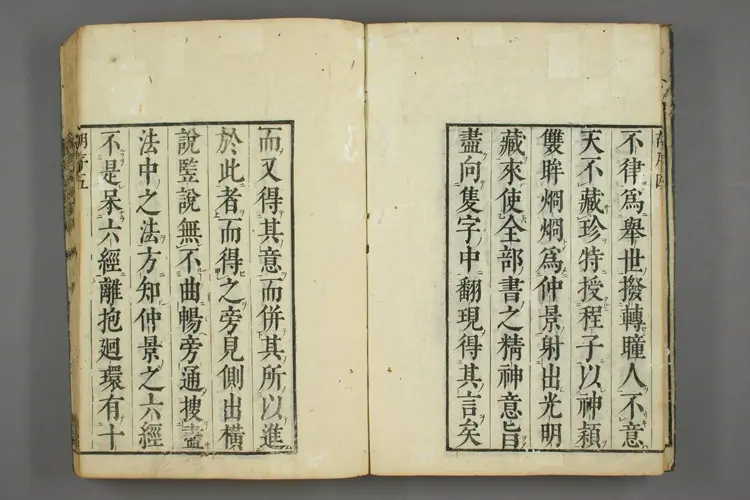 不律爲舉世撥轉瞳人不意
天不藏珍特授程子以神穎
雙眸烱烱爲仲景射出光明
藏來使全部書之精神意旨
盡向隻字中翻現得其言矣
而又得其意而併其所以進
於此者而得之旁見側出橫
說豎說無不曲暢旁通搜盡
法中之法方知仲景之六經
不是呆六經離抱廻環有十